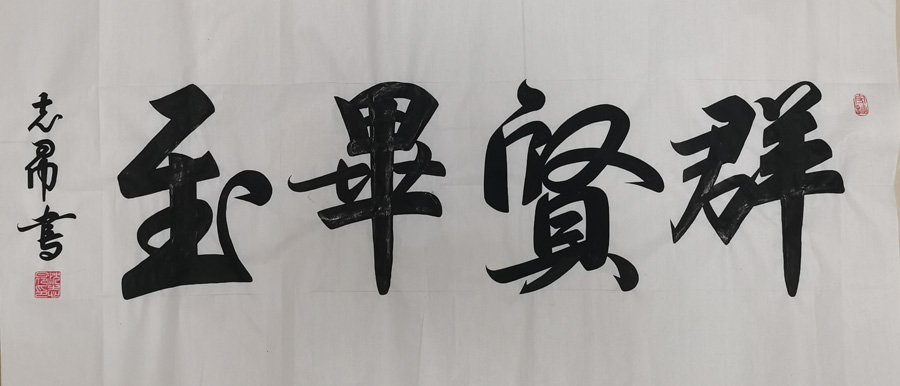 群賢畢至
志昂書